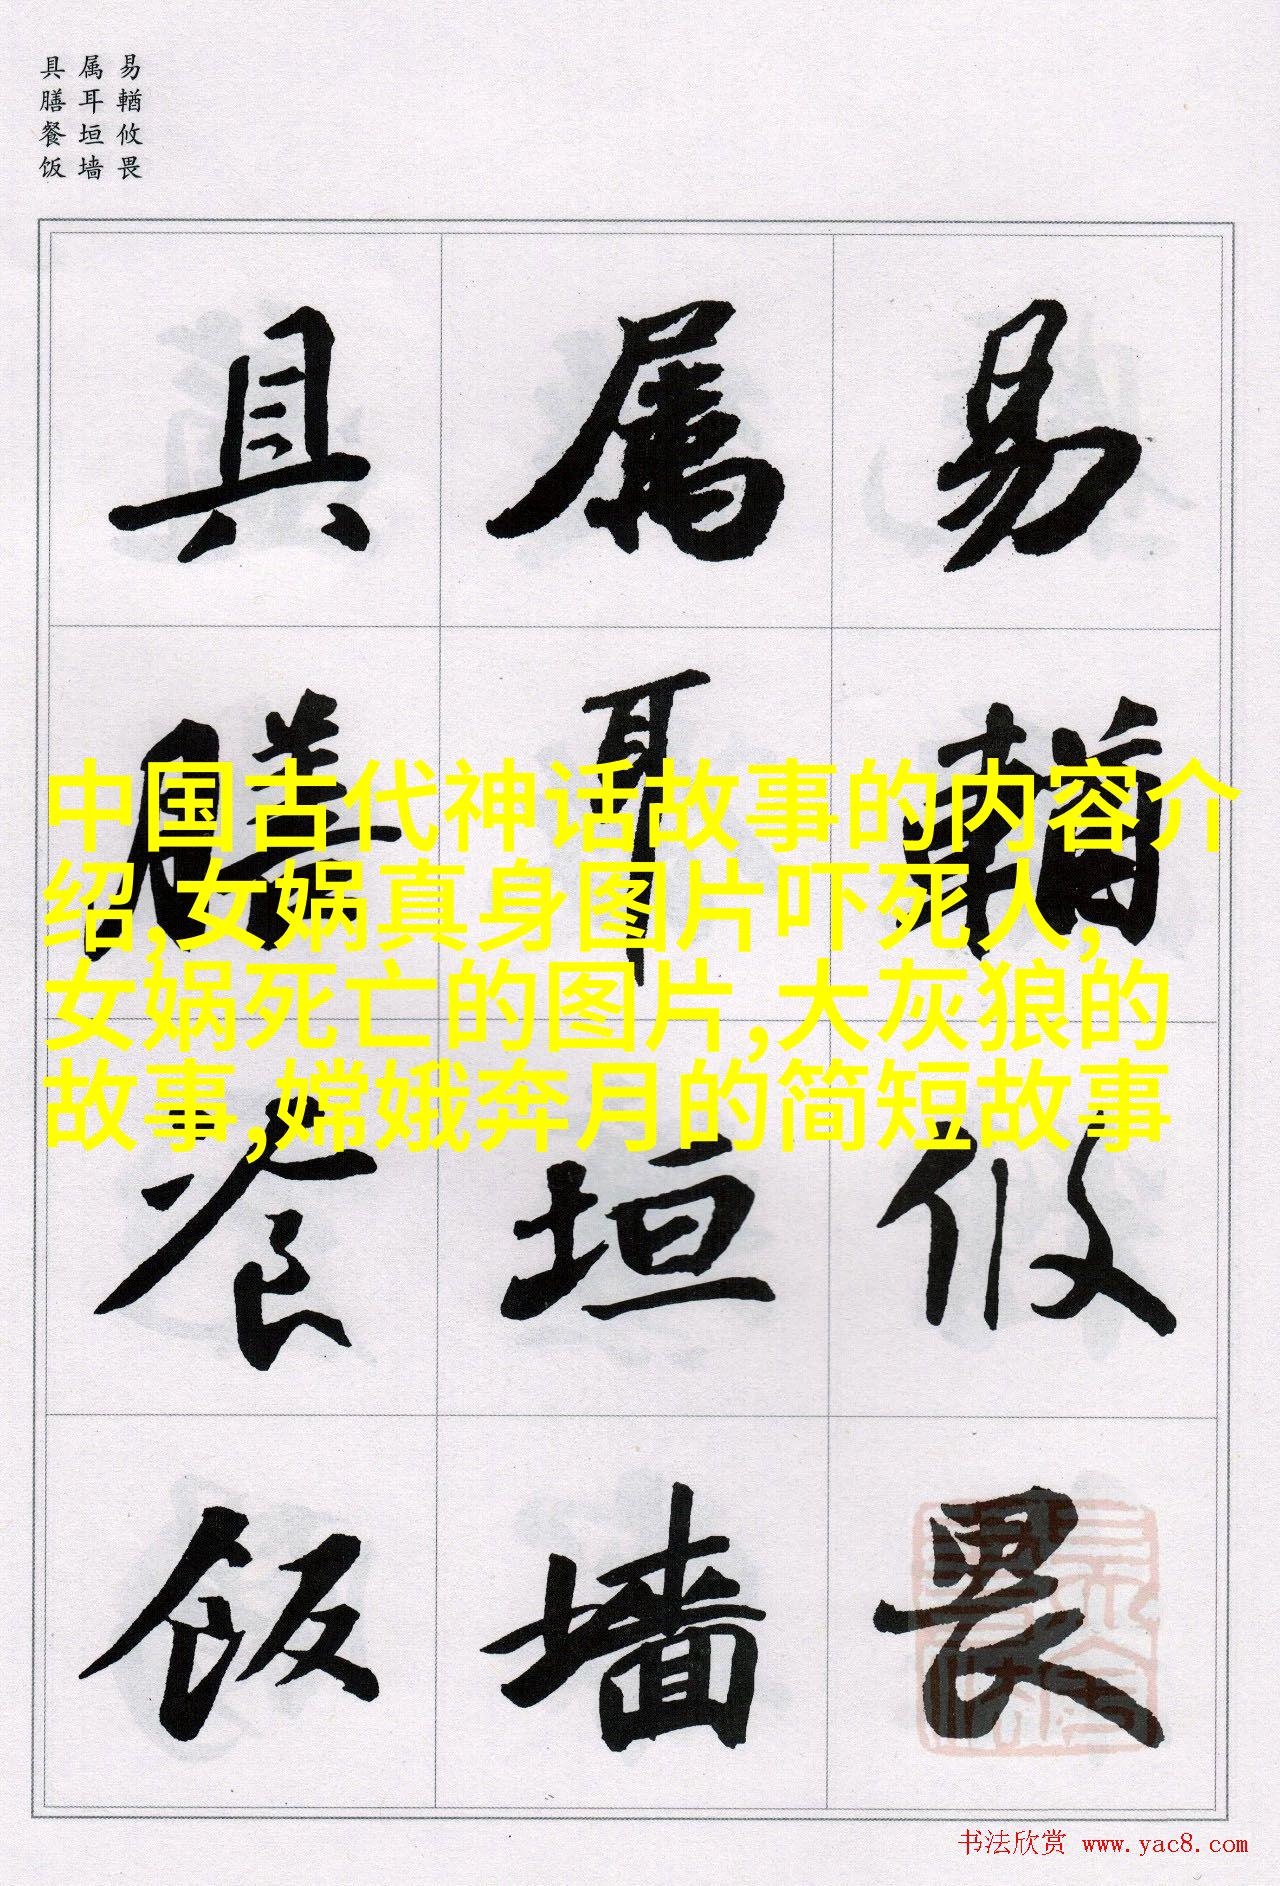 易輶攸畏
属耳垣墙
具膳餐饭
易輶攸畏
属耳垣墙
具膳餐饭
中国古代神话故事的内容介
绍,女娲真身图片吓死人,
女娲死亡的图片,大灰狼的
故事,嫦娥奔月的简短故事
书法欣赏 www.yac8.com